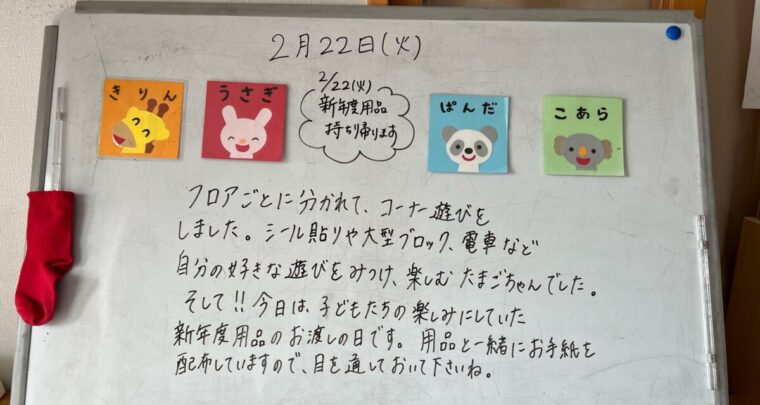 2月22日(火)
きりん
うさぎ
2/22(火)
新年度用品
持ち帰ります
ぱんだ
こあら
フロアごとに分かれて、コーナー遊びを
しました。シール貼りや大型ブロック、電車など
自分の好きな遊びをみつけ、楽しむたまごちゃんでした。
そして!!今日は、子どもたちの楽しみにしていた
新年度用品のお渡しの日です。用品と一緒にお手紙を
配布していますので、目を通しておいて下さいね。